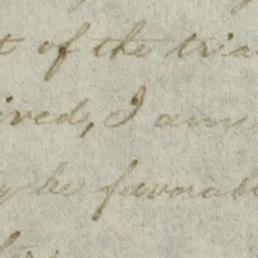 t of the tria
ived, I am
y be favorabl